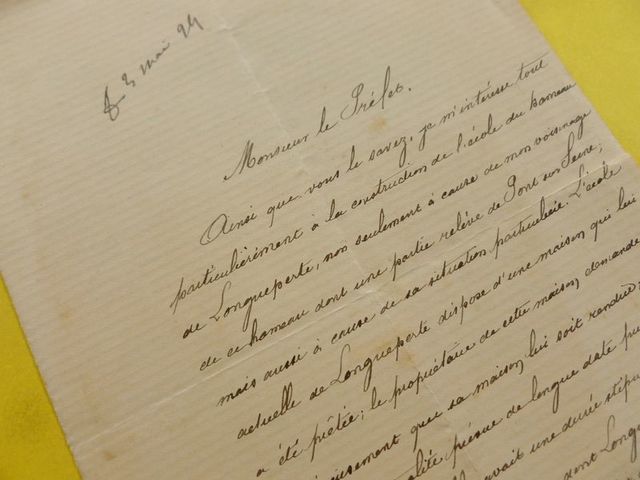 3 mai 94
Monsieur le Préfet.
Ainsi que vous le savez, je m'intéresse tout
particulièrement à la construction de l'école du hameau
de Longueperte, non seulement à cause de mon voisinage
de ce hameau dont une partie relève de Pont sur Seine;
mais aussi à cause de sa situation particulière. L'école
actuelle de Longueperte dispose d'une maison qui lui
a été prêtée; le propriétaire de cette maison demande
que sa maison lui soit rendue;
prévue de longue date pu
avait une durée stipu
Long